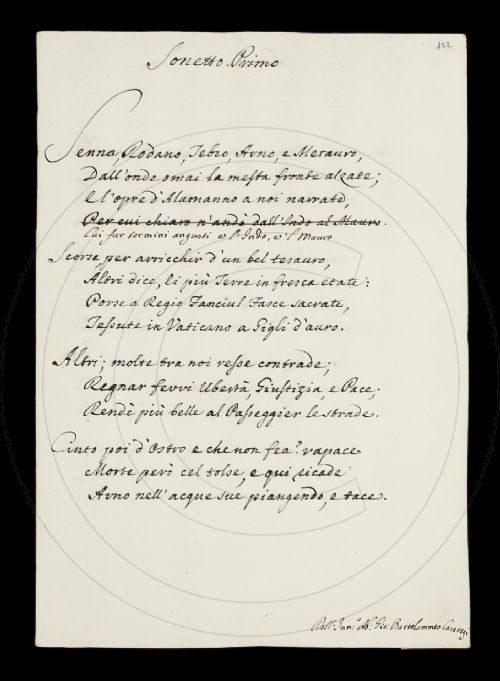 102
Sonetto Primo
Senna, Rodano, Tebro, Arno, e Metauro,
Dall'onde omai la mesta fronte alzate;
E l'opre d'Alamanno a noi narrate,
Per cui chiaro n'andò dall'Indo al Mauro.
Cui fur termini angusti e l'Indo, e 'l Mauro
Scorse, per arricchir d'un bel tesauro,
Altri dice, li più Terre in fresca etate:
Porse a Regio Fanciul Fasce sacrate,
Tessute in Vaticano a Gigli d'auro.
Altri; molte tra noi resse contrade;
Regnar fervvi Ubertà, Giustizia, e Pace;
Rendè più belle al Passeggier le strade.
Cinto poi d'Ostro e che non fea? rapace
Morte però cel tolse, e qui ricade
Arno nell'acque sue piangendo, e tace.
Dell' Ab. Gio. Bartolommeo Casaregi